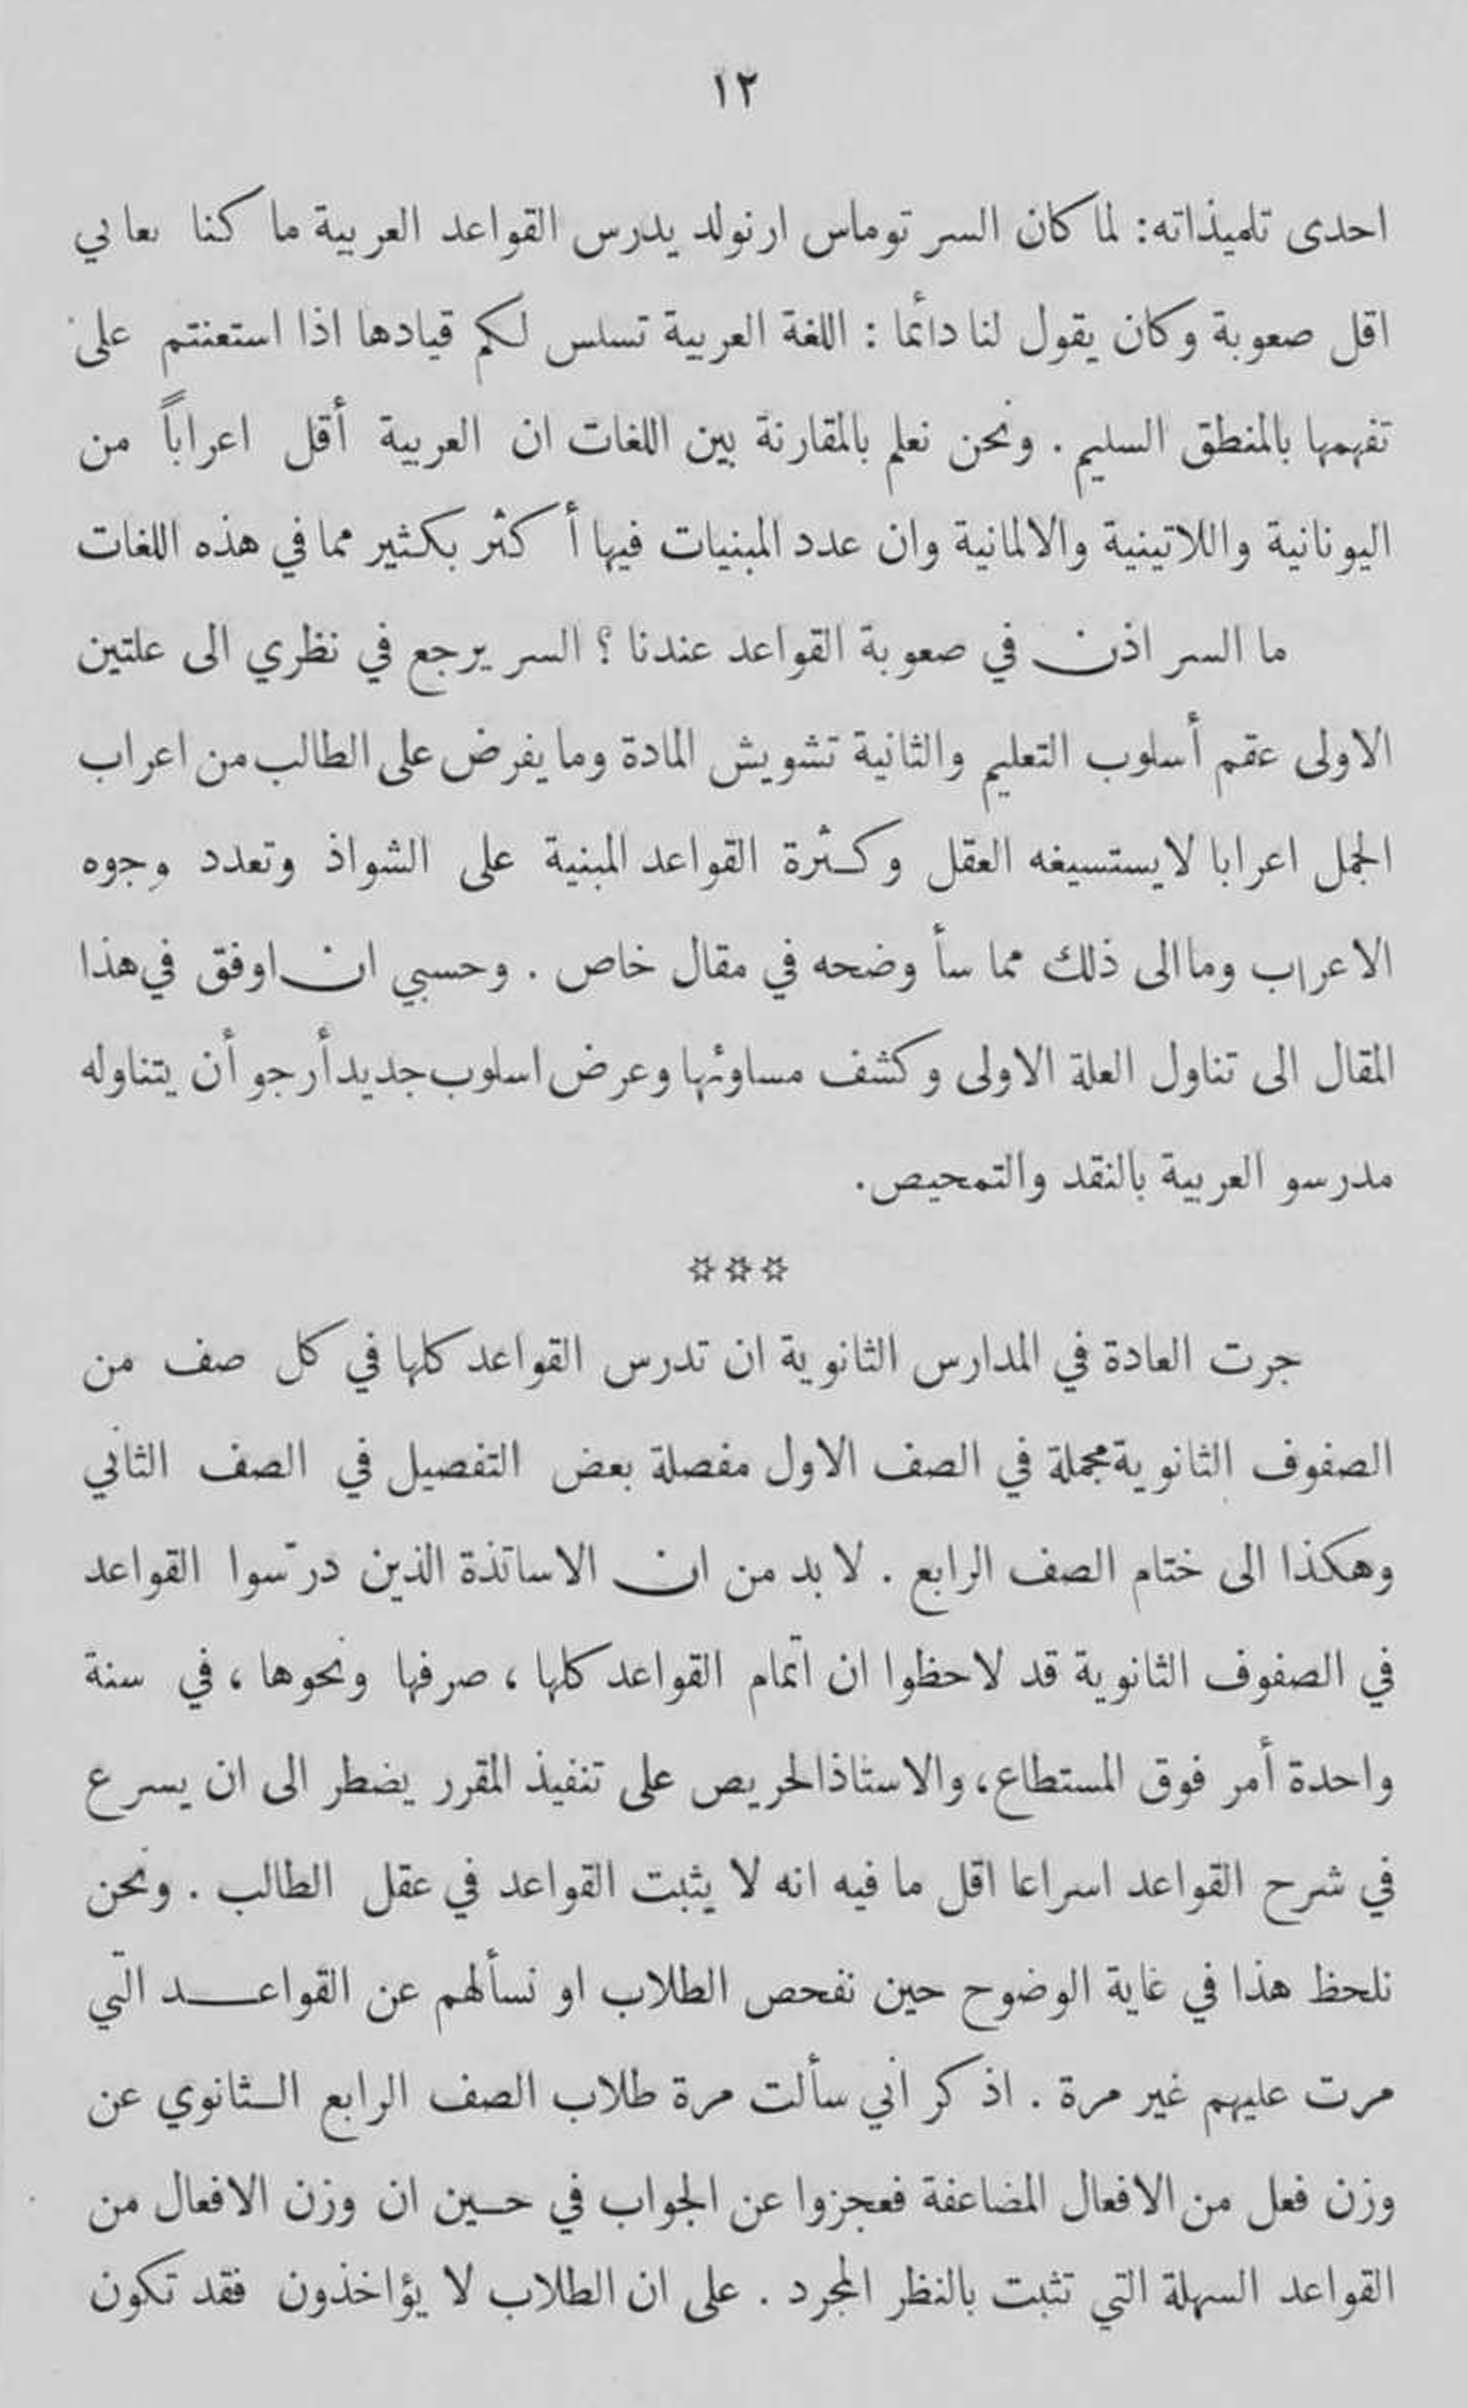 ١٢
احدى تلميذاته: لما كان السر توماس ارنولد يدرس القواعد العربية ما كنا نعاني
اقل صعوبة وكان يقول لنا دائما : اللغة العربية تسلس لكم قيادها اذا استعنتم على
تفهمها بالمنطق السليم . ونحن نعلم بالمقارنة بين اللغات ان العربية أقل اعراباً من
اليونانية واللاتينية والالمانية وان عدد المبنيات فيها أكثر بكثير مما في هذه اللغات
ما السر اذن في صعوبة القواعد عندنا ؟ السر يرجع في نظري الى علتين
الاولى عقم أسلوب التعليم والثانية تشويش المادة وما يفرض على الطالب من اعراب
الجمل اعرابا لا يستسيغه العقل وكثرة القواعد المبنية على الشواذ وتعدد وجوه
الاعراب وما الى ذلك مما سأوضحه في مقال خاص . وحسبي ان اوفق في هذا
المقال الى تناول العلة الاولى وكشف مساوئها وعرض اسلوب جديد أرجو أن يتناوله
مدرسو العربية بالنقد والتمحيص.
***
جرت العادة في المدارس الثانوية ان تدرس القواعد كلها في كل صف من
الصفوف الثانوية مجملة في الصف الاول مفصلة بعض التفصيل في الصف الثاني
وهكذا الى ختام الصف الرابع . لا بد من ان الاساتذة الذين درّسوا القواعد
في الصفوف الثانوية قد لاحظوا ان اتمام القواعد كلها ، صرفها ونحوها ، في سنة
واحدة أمر فوق المستطاع، والاستاذ الحريص على تنفيذ المقرر يضطر الى ان يسرع
في شرح القواعد اسراعا اقل ما فيه انه لا يثبت القواعد في عقل الطالب . ونحن
نلحظ هذا في غاية الوضوح حين نفحص الطلاب او نسألهم عن القواعد التي
مرت عليهم غير مرة . اذكر أني سألت مرة طلاب الصف الرابع الثانوي عن
وزن فعل من الافعال المضاعفة فعجزوا عن الجواب في حين ان وزن الافعال من
القواعد السهلة التي تثبت بالنظر المجرد . على ان الطلاب لا يؤاخذون فقد تكون